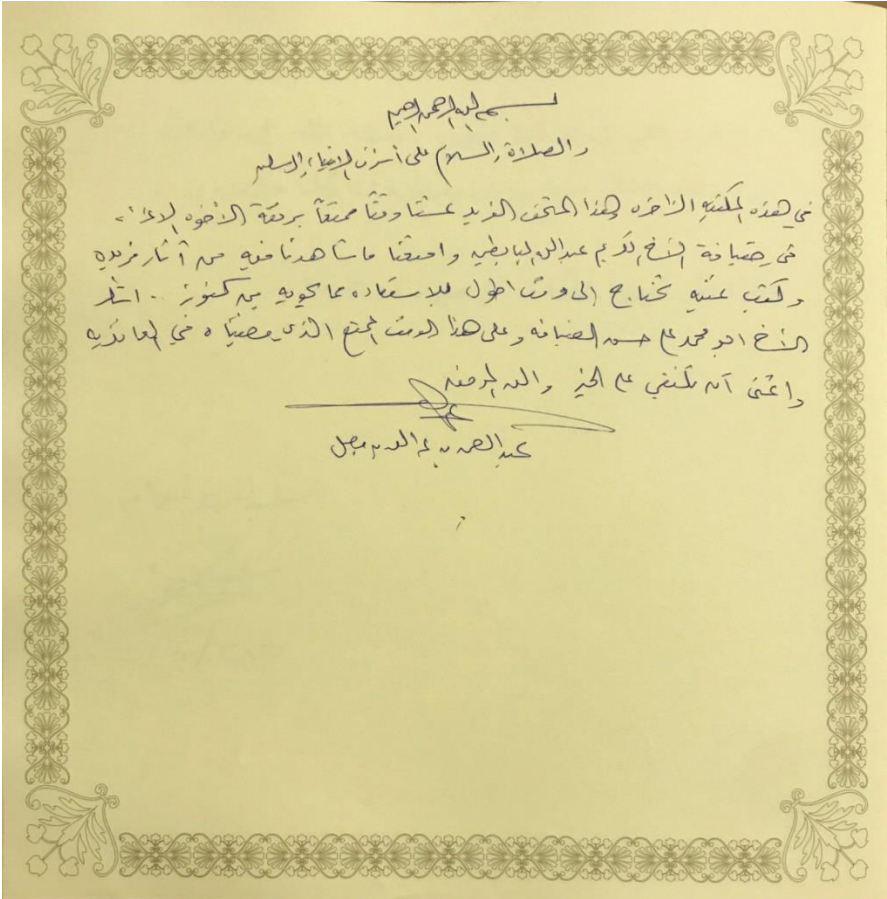 بسم الله الرحمن الرحيم
والصلاة والسلام على أشرف الانبياء والمرسلين
في هذه المكتبه الزاخره وهذا المتحف الفريد عشنا وقتاً ممتعاً برفقة الأخوه الاعزاء
في ضيافة الأخ الكريم عبدالله البابطين وامتعنا ما شاهدنا فيه من آثار فريده
وكتب غنيه تحتاج إلى وقت اطول للاستفاده مما تحويه من كنوز .. اشكر
الأخ ابو محمد على حسن الضيافه وعلى هذا الوقت الممتع الذي قضيناه في
واتمنى أن نلتقي على الخير والله الموفق
عبدالله